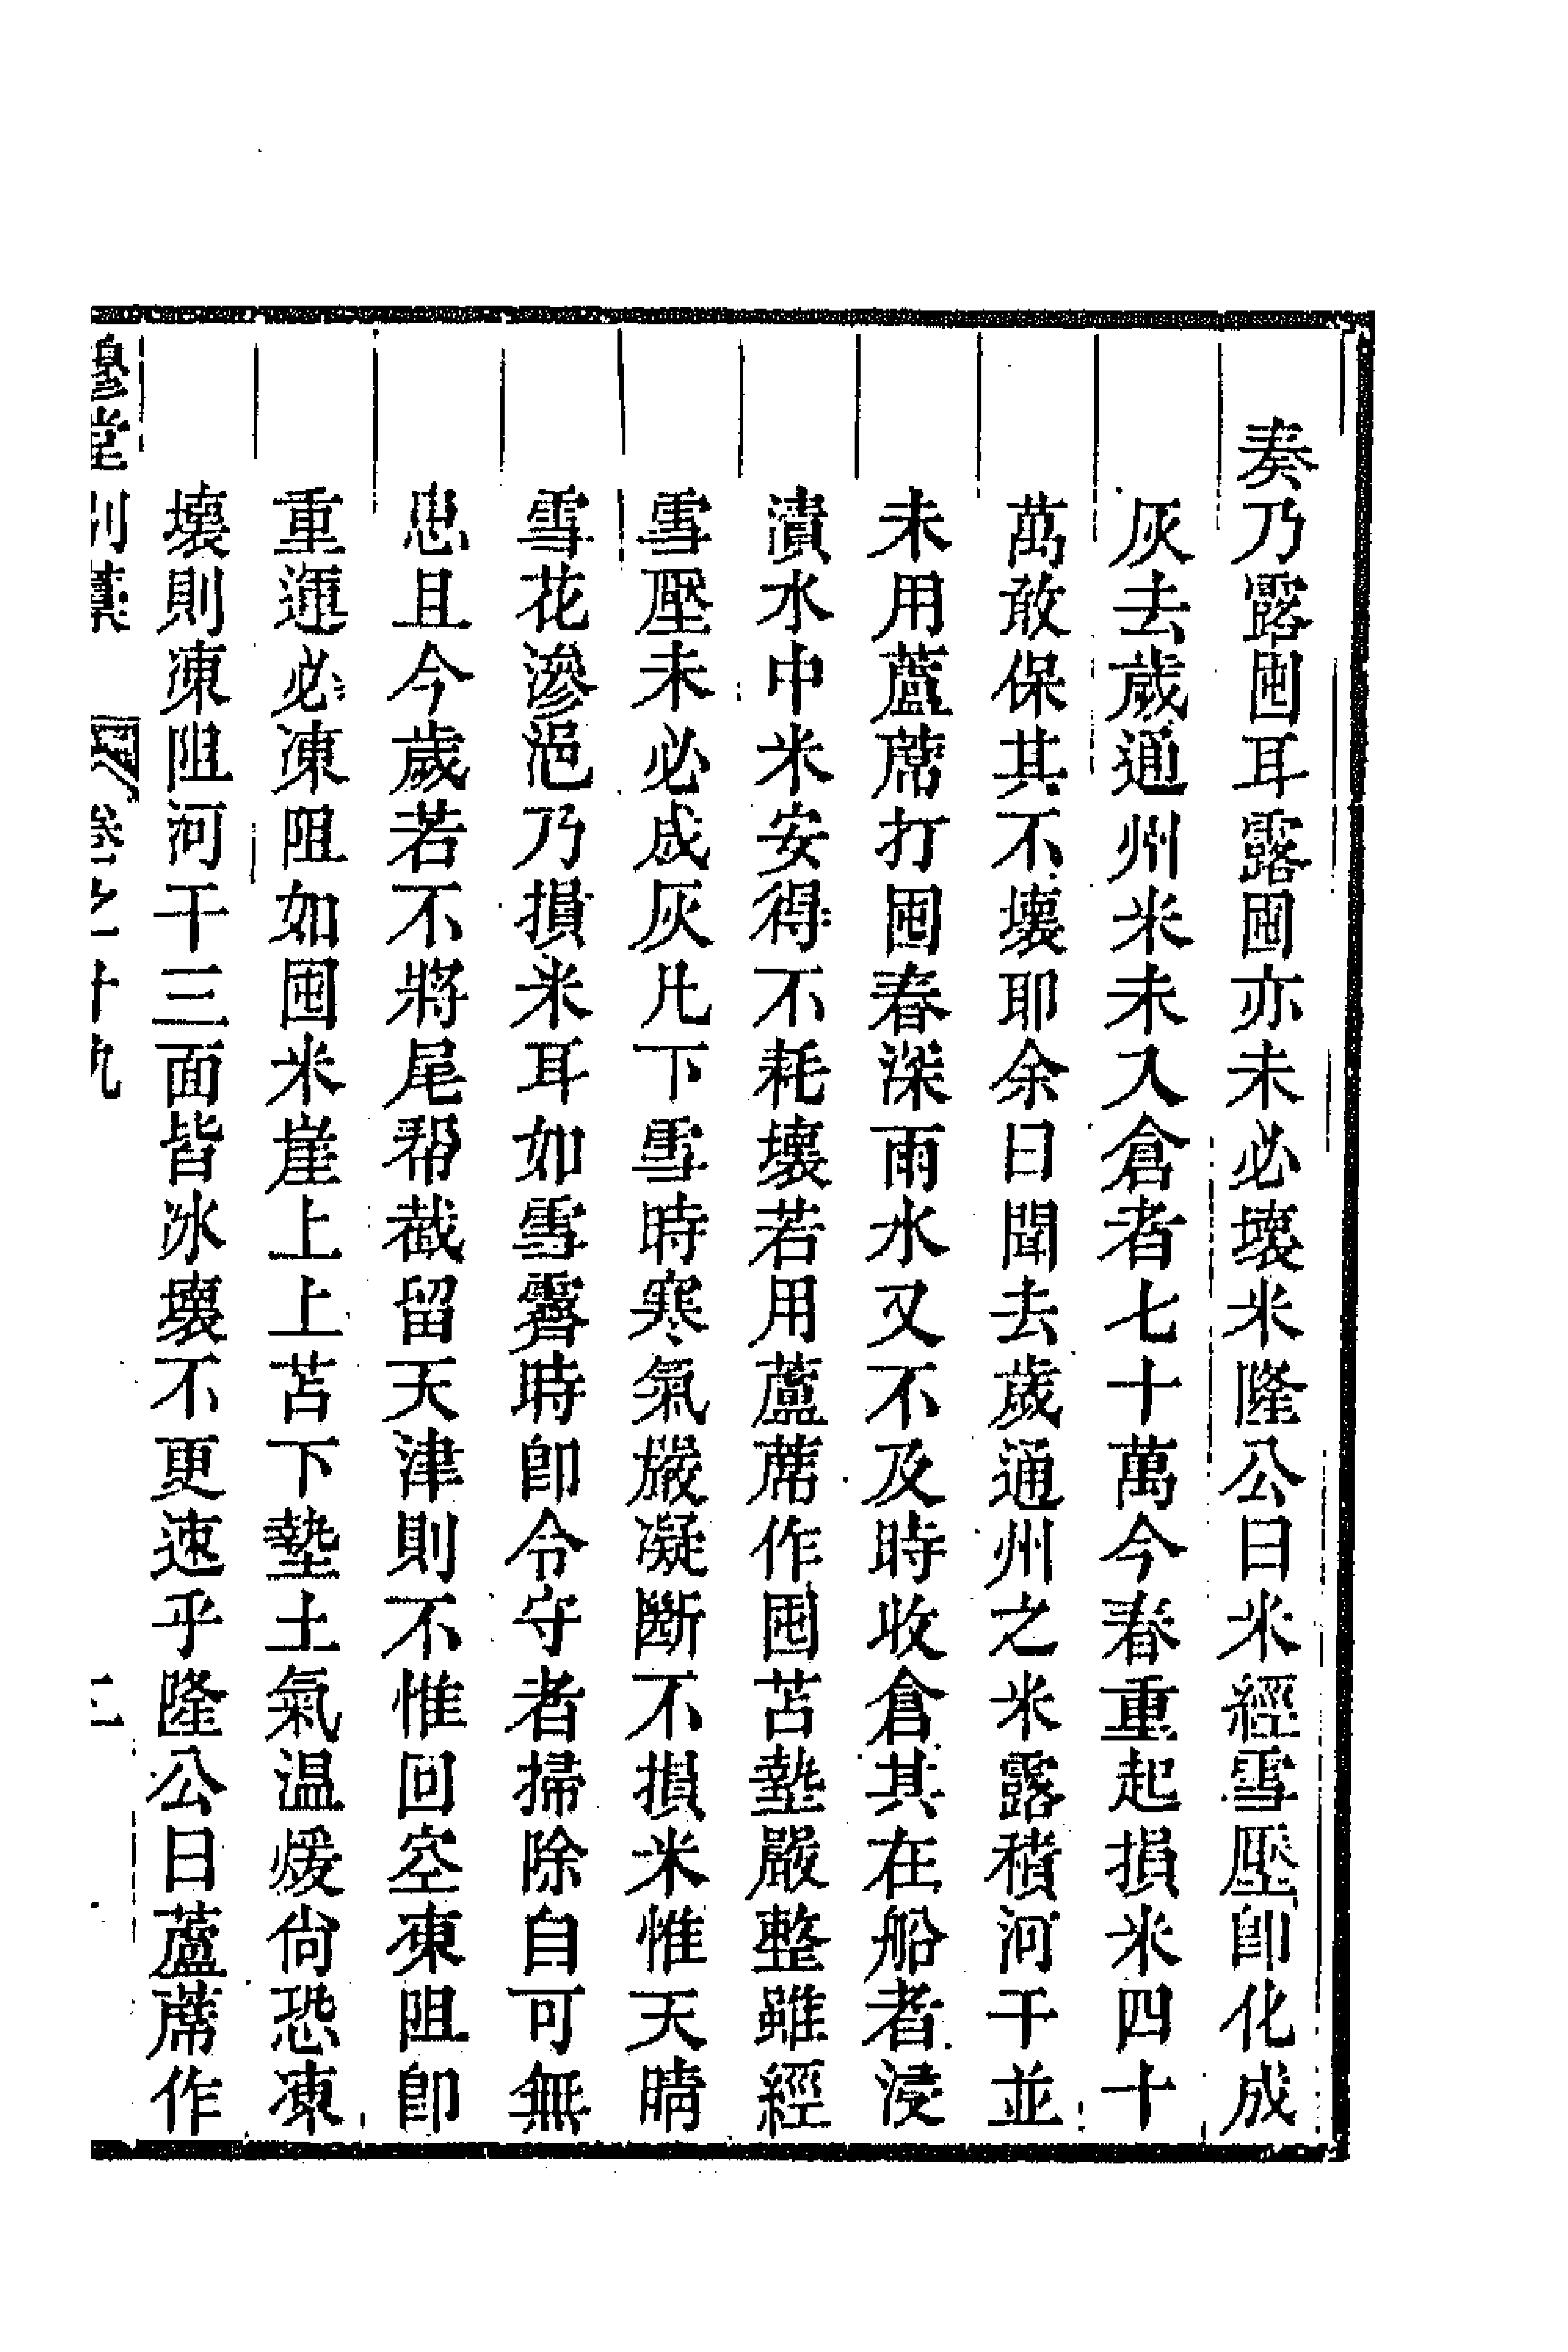 奏乃露囤耳露囤亦未必壞米隆公曰米經雪壓卽化成
灰去歲通州米未入倉者七十萬今春重起損米四十
萬敢保其不壞耶余曰聞去歲通州之米露積河干並
未用蘆蓆打囤春深雨水又不及時收倉其在船者浸
漬水中米安得不耗壞若用蘆蓆作囤苫墊嚴整雖經
雪壓未必成灰凡下雪時寒氣嚴凝斷不損米惟天晴
雪花滲浥乃損米耳如雪霽時卽令守者掃除自可無
患且今歲若不將尾帮截留天津則不惟回空凍阻卽
重運必凍阻如囤米崖上上苫下墊土氣温煖尙恐凍
壞則凍阻河干三面皆冰壞不更速乎隆公曰蘆蓆作
穆堂別藁 卷之十九 三